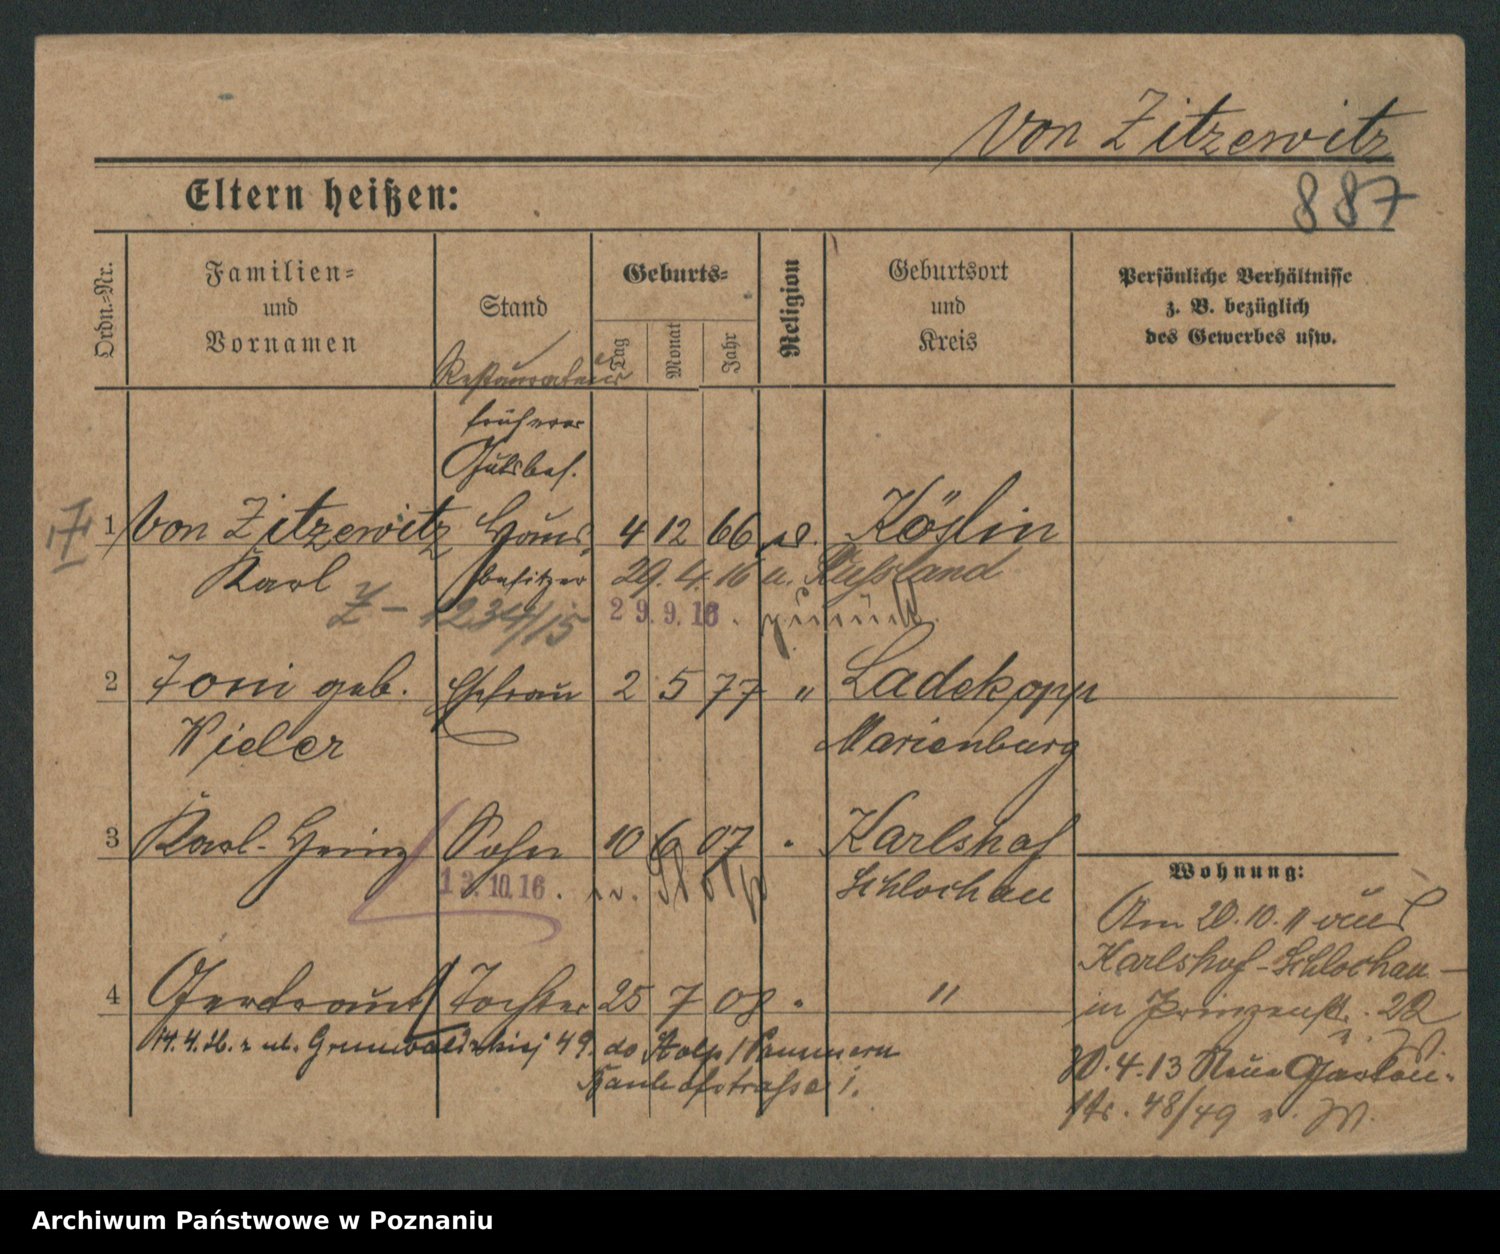 von Zitzewitz
887
Eltern heißen:
Ordn.-Nr.
Familien-
und
Vornamen
Stand
Geburts-
Tag
Monat
Jahr
Religion
Geburtsort
und
Kreis
Persönliche Verhältnisse
z. B. bezüglich
des Gewerbes usw.
Restaurateur
früherer
Gutsbes.
1 von Zitzewitz Haus- 4 12 66 Köslin
Karl besitzer 29. 4. 16 Russland
Z - 1234/15 29. 9. 16. zurück.
2 Toni geb. Ehefrau 2 5 77 " Ladekopp
Wieler Marienburg
3 Karl-Heinz Sohn 10 6 07 " Karlshof
13. 10. 16. n. Stolp Schlochau
4 Gertraut Tochter 25 7 08 " "
14. 4. z ul. Grunwaldzkiej 49. do Stolp / Pommern
strasse 1.
Wohnung:
Am 20. 10. 11 aus
Karlshof-Schlochau -
in Prinzenstr. 22
30. 4. 13 Neue Garten-
str. 48/49 v. W.